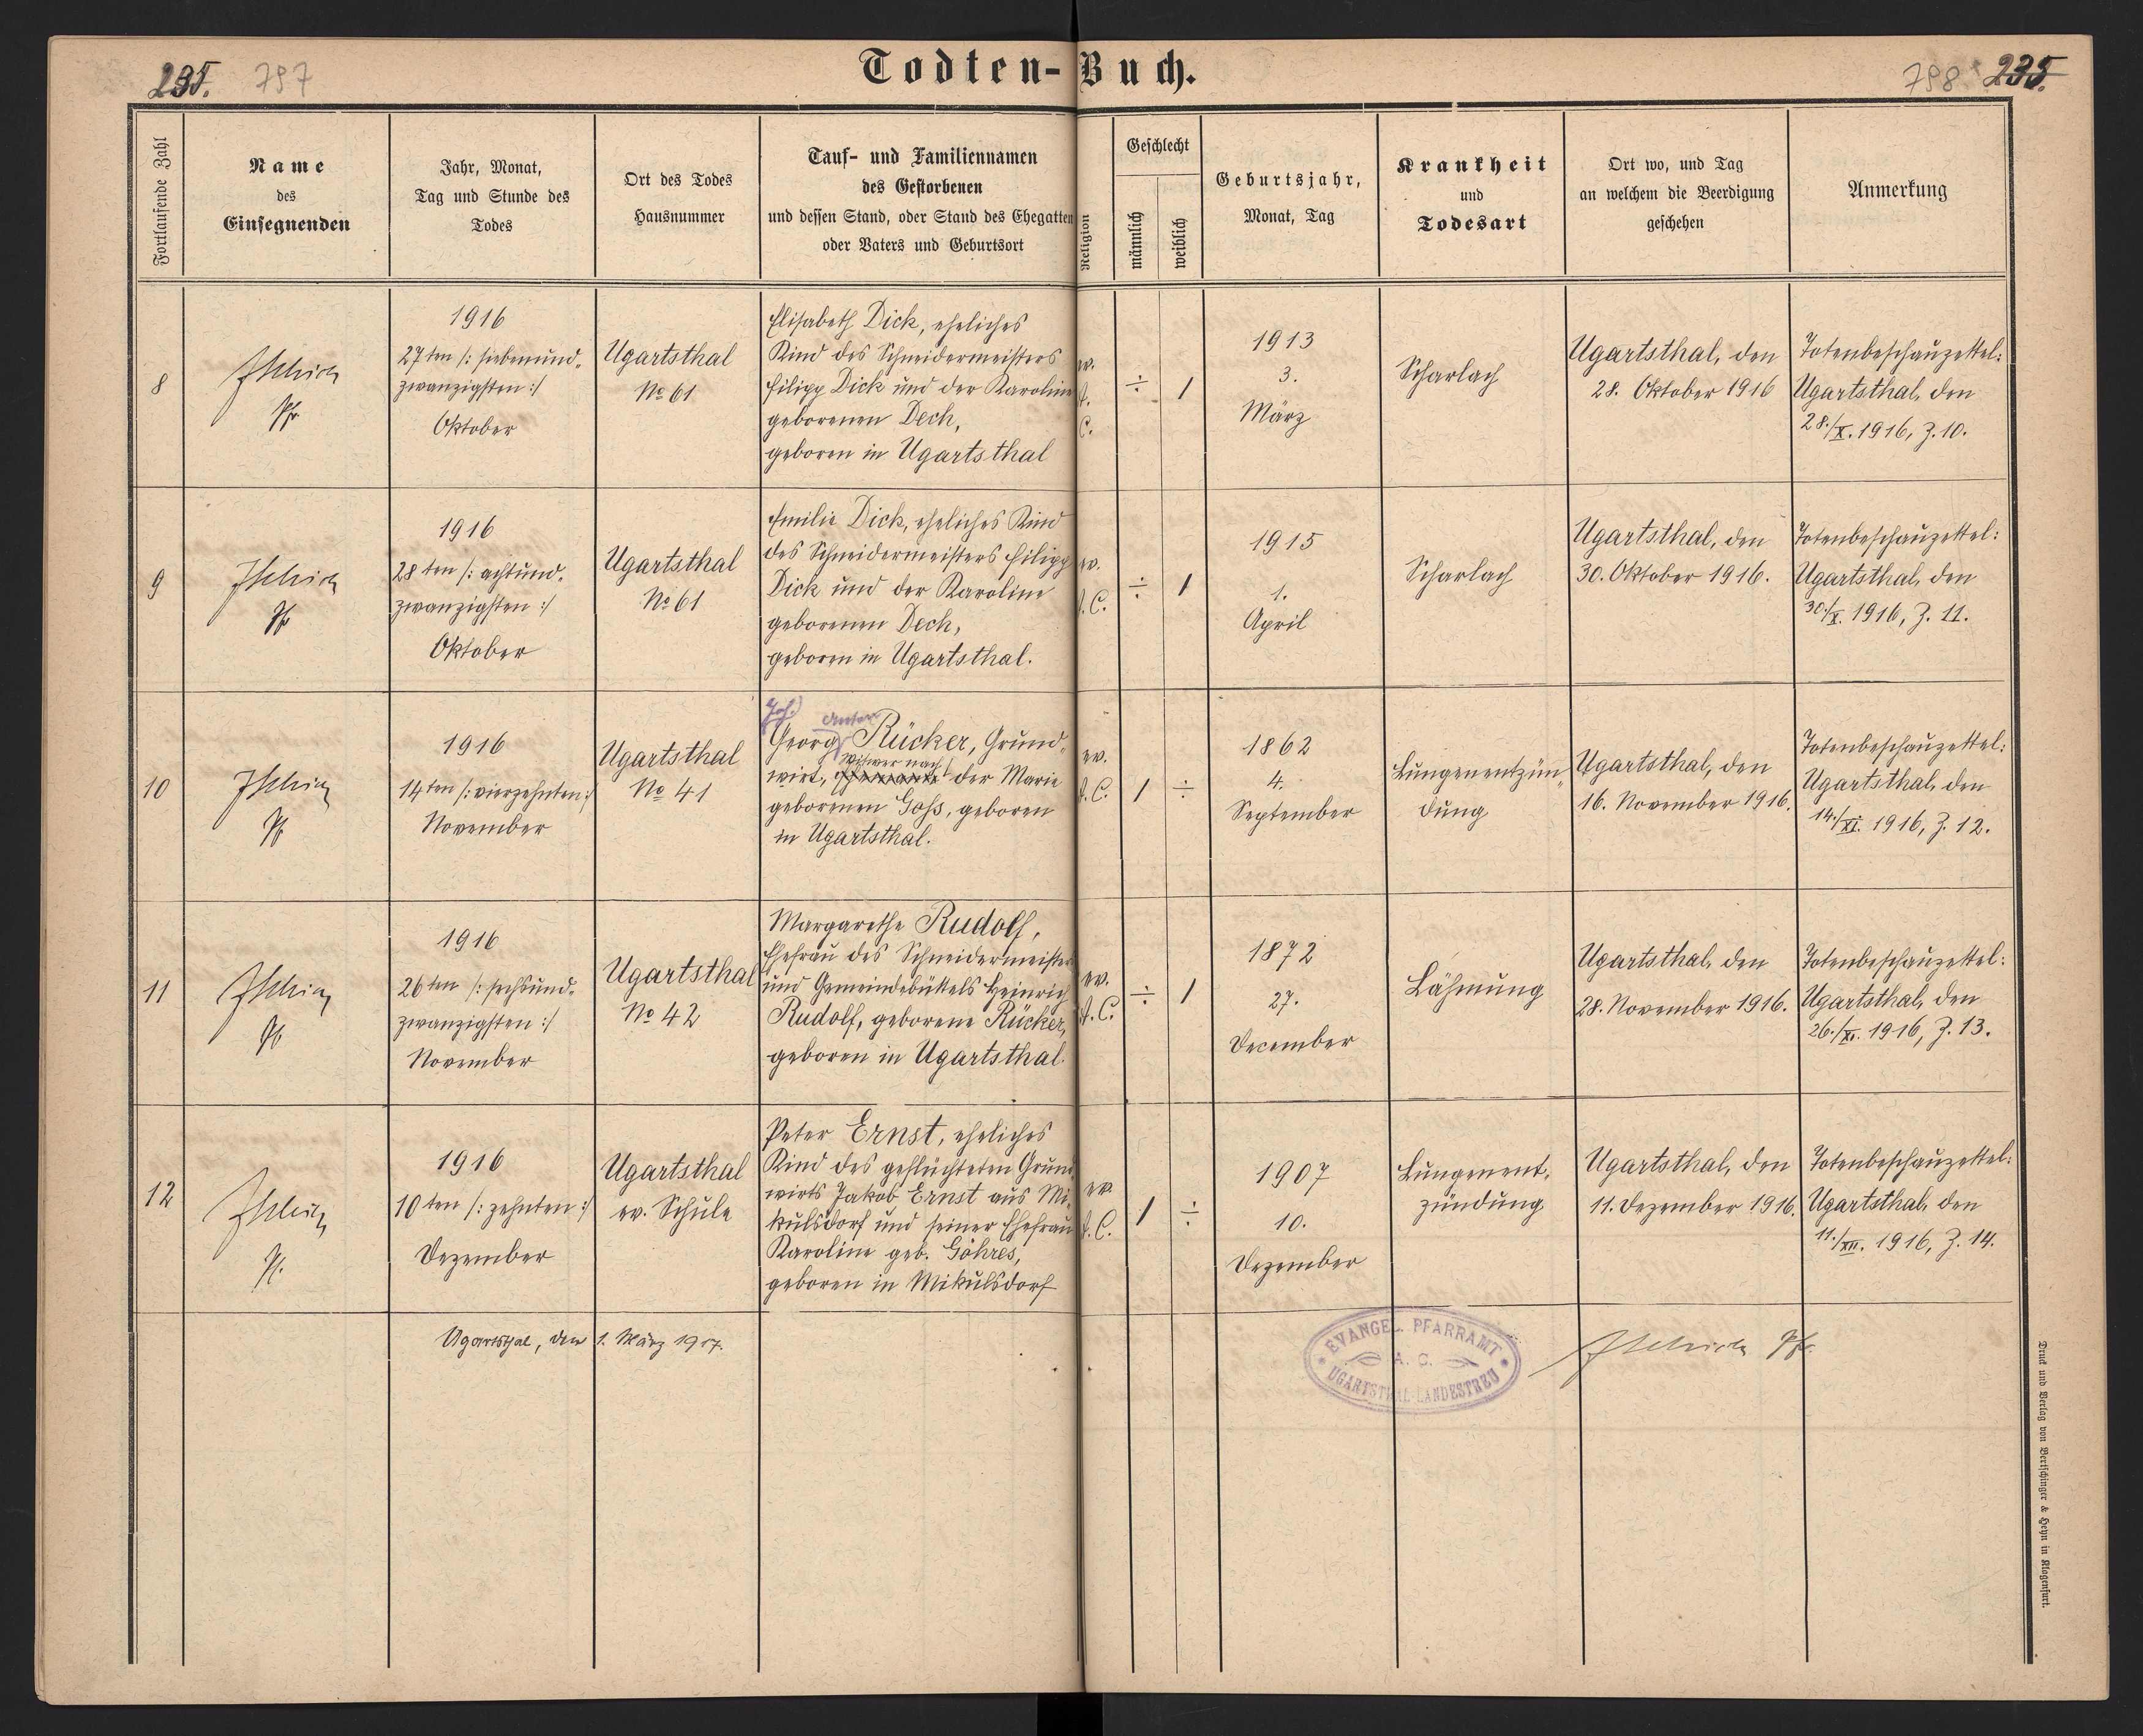 Todten-Buch.
235. 797
798 235.
Fortlaufende Zahl
Name
des
Einsegnenden
Jahr, Monat,
Tag und Stunde des
Todes
Ort des Todes
Hausnummer
Tauf- und Familiennamen
des Gestorbenen
und dessen Stand, oder Stand des Ehegatten
oder Vaters und Geburtsort
Religion
Geschlecht
männlich
weiblich
Geburtsjahr,
Monat, Tag
Krankheit
und
Todesart
Ort wo, und Tag
an welchem die Beerdigung
geschehen
Anmerkung
8
Pfr
1916
27ten /: siebenund-
zwanzigsten :/
Oktober
Ugartsthal
No 61
Elisabeth Dick, eheliches
Kind des Schneidermeisters
Filipp Dick und der Karoline
geborenen Dech,
geboren in Ugartsthal
ev.
A.
C.
÷ 1
1913
3.
März
Scharlach
Ugartsthal, den
28. Oktober 1916
Totenbeschauzettel:
Ugartsthal, den
28./X. 1916, Z. 10.
9
Pfr
1916
28ten /: achtund-
zwanzigsten :/
Oktober
Ugartsthal
No 61
Emilie Dick, eheliches Kind
des Schneidermeisters Filipp
Dick und der Karoline
geborenen Dech,
geboren in Ugartsthal.
ev.
A.C.
÷ 1
1915
1.
April
Scharlach
Ugartsthal, den
30. Oktober 1916.
Totenbeschauzettel:
Ugartsthal, den
30./X. 1916, Z. 11.
10
Pfr
1916
14ten /: vierzehnten :/
November
Ugartsthal
No 41
Joh.
Georg Rücker, Grund-
witwer nach
wirt, der Marie
geborenen Gohs, geboren
in Ugartsthal.
ev.
A.C.
1 ÷
1862
4.
September
Lungenentzün-
dung
Ugartsthal, den
16. November 1916.
Totenbeschauzettel:
Ugartsthal, den
14./XI. 1916, Z. 12.
11
Pfr
1916
26ten /: sechsund-
zwanzigsten :/
November
Ugartsthal
No 42
Margarethe Rudolf,
Ehefrau des Schneidermeisters
und Gemeindebüttels Heinrich
Rudolf, geborene Rücker,
geboren in Ugartsthal.
ev.
A.C.
÷ 1
1872
27.
December
Lähmung
Ugartsthal, den
28. November 1916.
Totenbeschauzettel:
Ugartsthal, den
26./XI. 1916, Z. 13.
12
Pf.
1916
10ten /: zehnten :/
Dezember
Ugartsthal
ev. Schule
Peter Ernst, eheliches
Kind des geflüchteten Grund-
wirts Jakob Ernst aus Mi-
kulsdorf und seiner Ehefrau
Karoline geb. Göhres,
geboren in Mikulsdorf
ev.
A.C.
1 ÷
1907
10.
Dezember
Lungenent-
zündung
Ugartsthal, den
11. Dezember 1916.
Totenbeschauzettel:
Ugartsthal, den
11./XII. 1916, Z. 14.
Ugartsthal, den 1. März 1917.
EVANGEL. PFARRAMT
A. C.
UGARTSTHAL-LANDESTREU
Pfr.
Druck und Verlag von Bertschinger & Heyn in Klagenfurt.